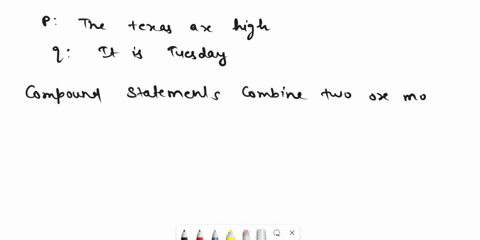 P: The texas are high
q: It is Tuesday
Compound statements combine two or mo